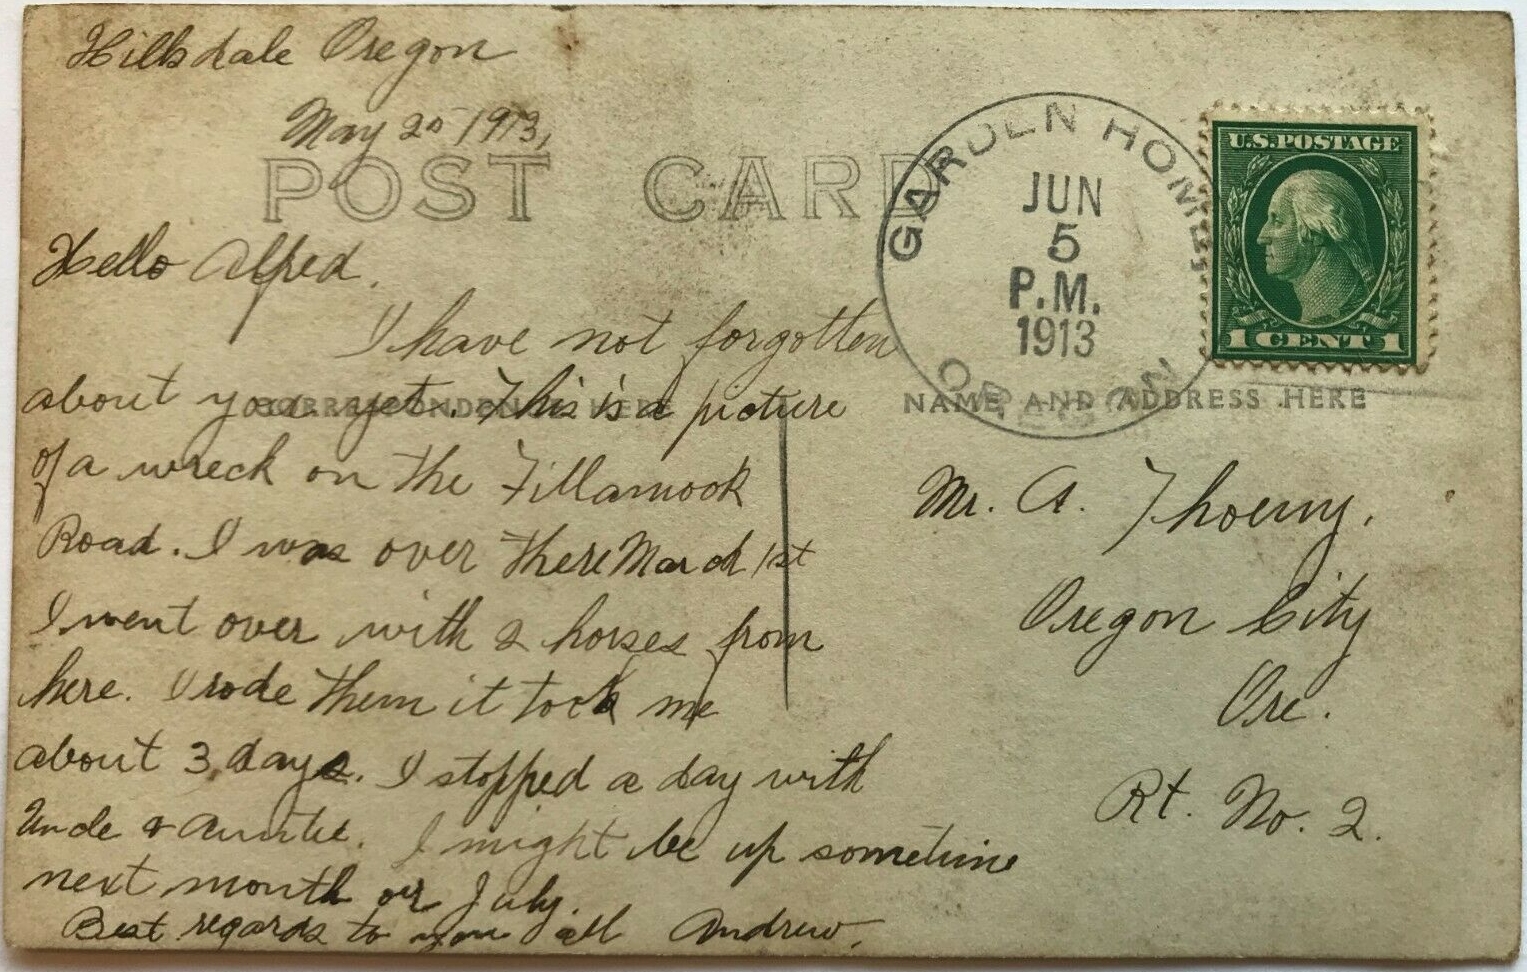 Hillsdale Oregon
May 25 1913,
POST CARD
Hello Alfred.
I have not forgotten
about you yet. This is a picture
of a wreck on the Tillamook
Road. I was over there March 1st
I went over with 2 horses from
here. I rode them it took me
about 3 days. I stopped a day with
Uncle & Auntie. I might be up sometime
next month or July.
Best regards to you all Andrew.
CORRESPONDENCE HERE
GARDEN HOME
JUN
5
P.M.
1913
OREGON
U.S. POSTAGE
1 CENT 1
NAME AND ADDRESS HERE
Mr. A. Thoeny.
Oregon City
Ore.
Rt. No. 2.